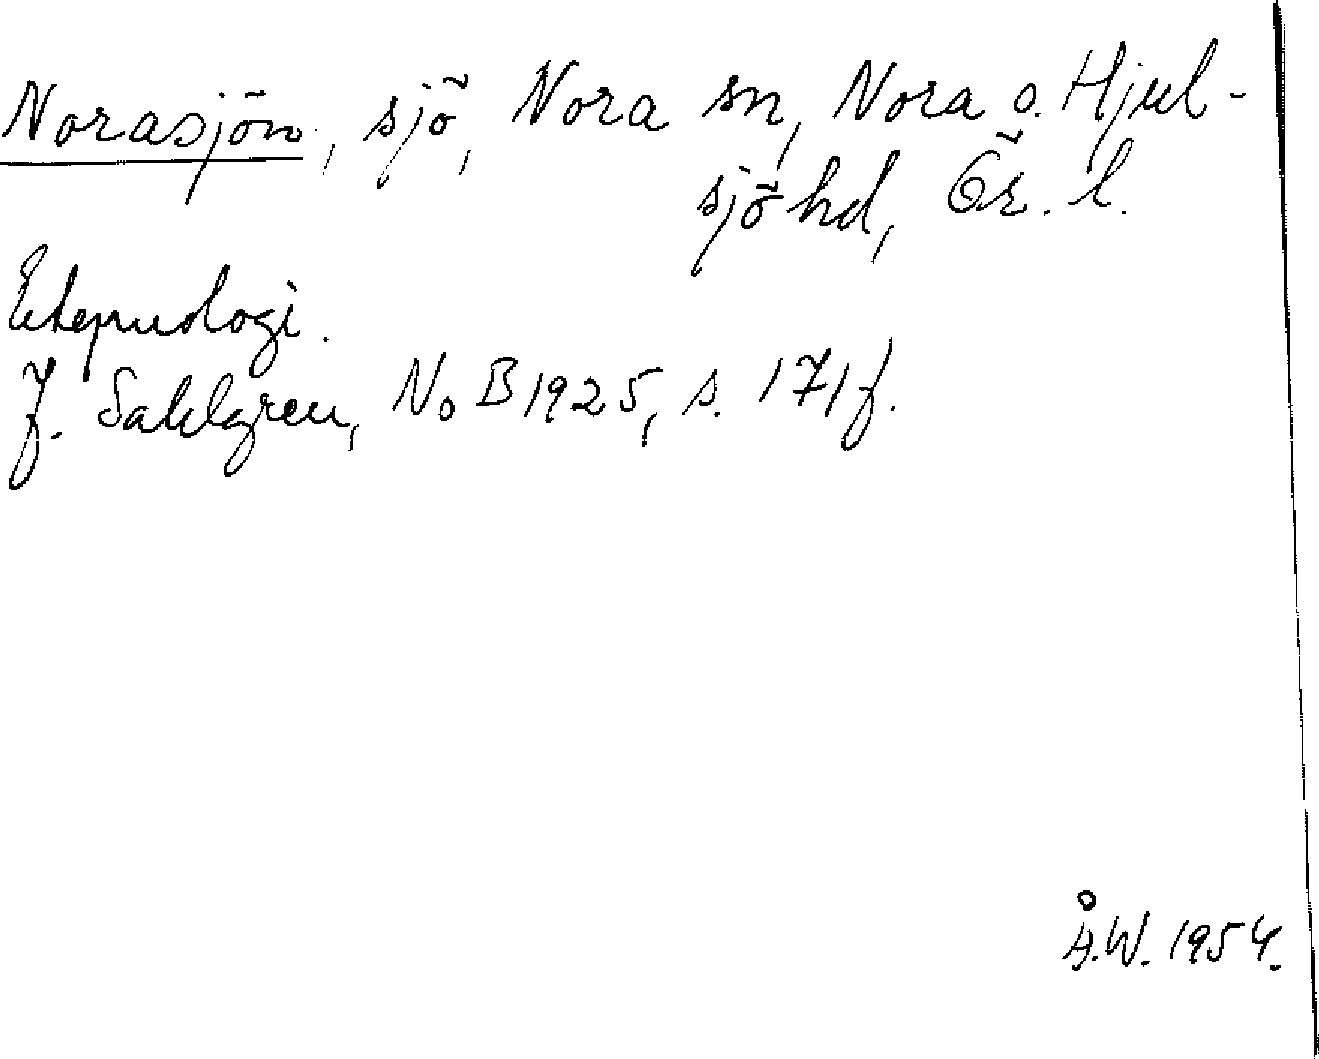 Norasjön, sjö, Nora sn, Nora o. Hjul-
sjö hd, Ör. l.
Etymologi.
J. Sahlgren, NoB 1925, s. 171 f.
Å.W. 1954.